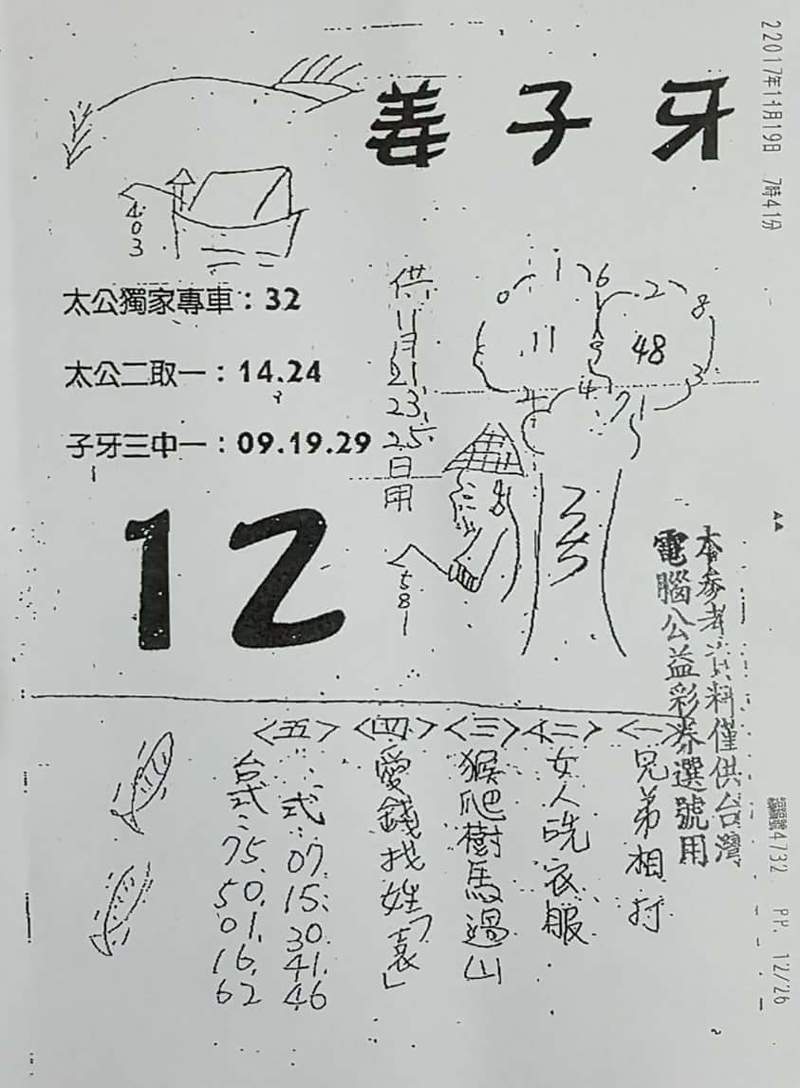 22017年11月19日 7時41分
姜子牙
403
太公獨家專車：32
太公二取一：14.24
子牙三中一：09.19.29
供11月21.23.25日用
0
1
6
11
9
2
8
48
3
4
7
1
581
12
本參考資料僅供台灣
電腦公益彩券選號用
<一>兄弟相打
<二>女人洗衣服
<三>猴爬樹馬過山
<四>愛錢找姓「袁」
<五>
式：07.15.30.41.46
台式：75.50.01.16.62
4732 P.P. 12/26